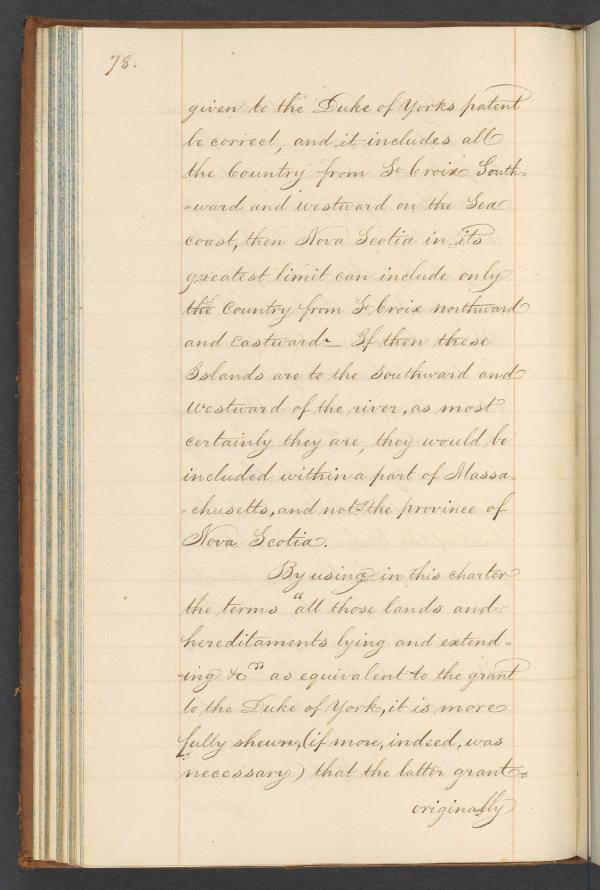 78.
given to the Duke of Yorks patent
be correct, and it includes all
the Country from St Croix South=
=ward and westward on the Sea
coast, then Nova Scotia in its
greatest limit can include only
the country from St Croix northward
and eastward — If then these
Islands are to the southward and
westward of the river, as most
certainly they are, they would be
included within a part of Massa=
=chusetts, and not the province of
Nova Scotia.
By using in this charter
the terms "all those lands and
hereditaments lying and extend=
=ing &c" as equivalent to the grant
to the Duke of York, it is more
fully shewn, (if more, indeed, was
necessary) that the latter grant
originally